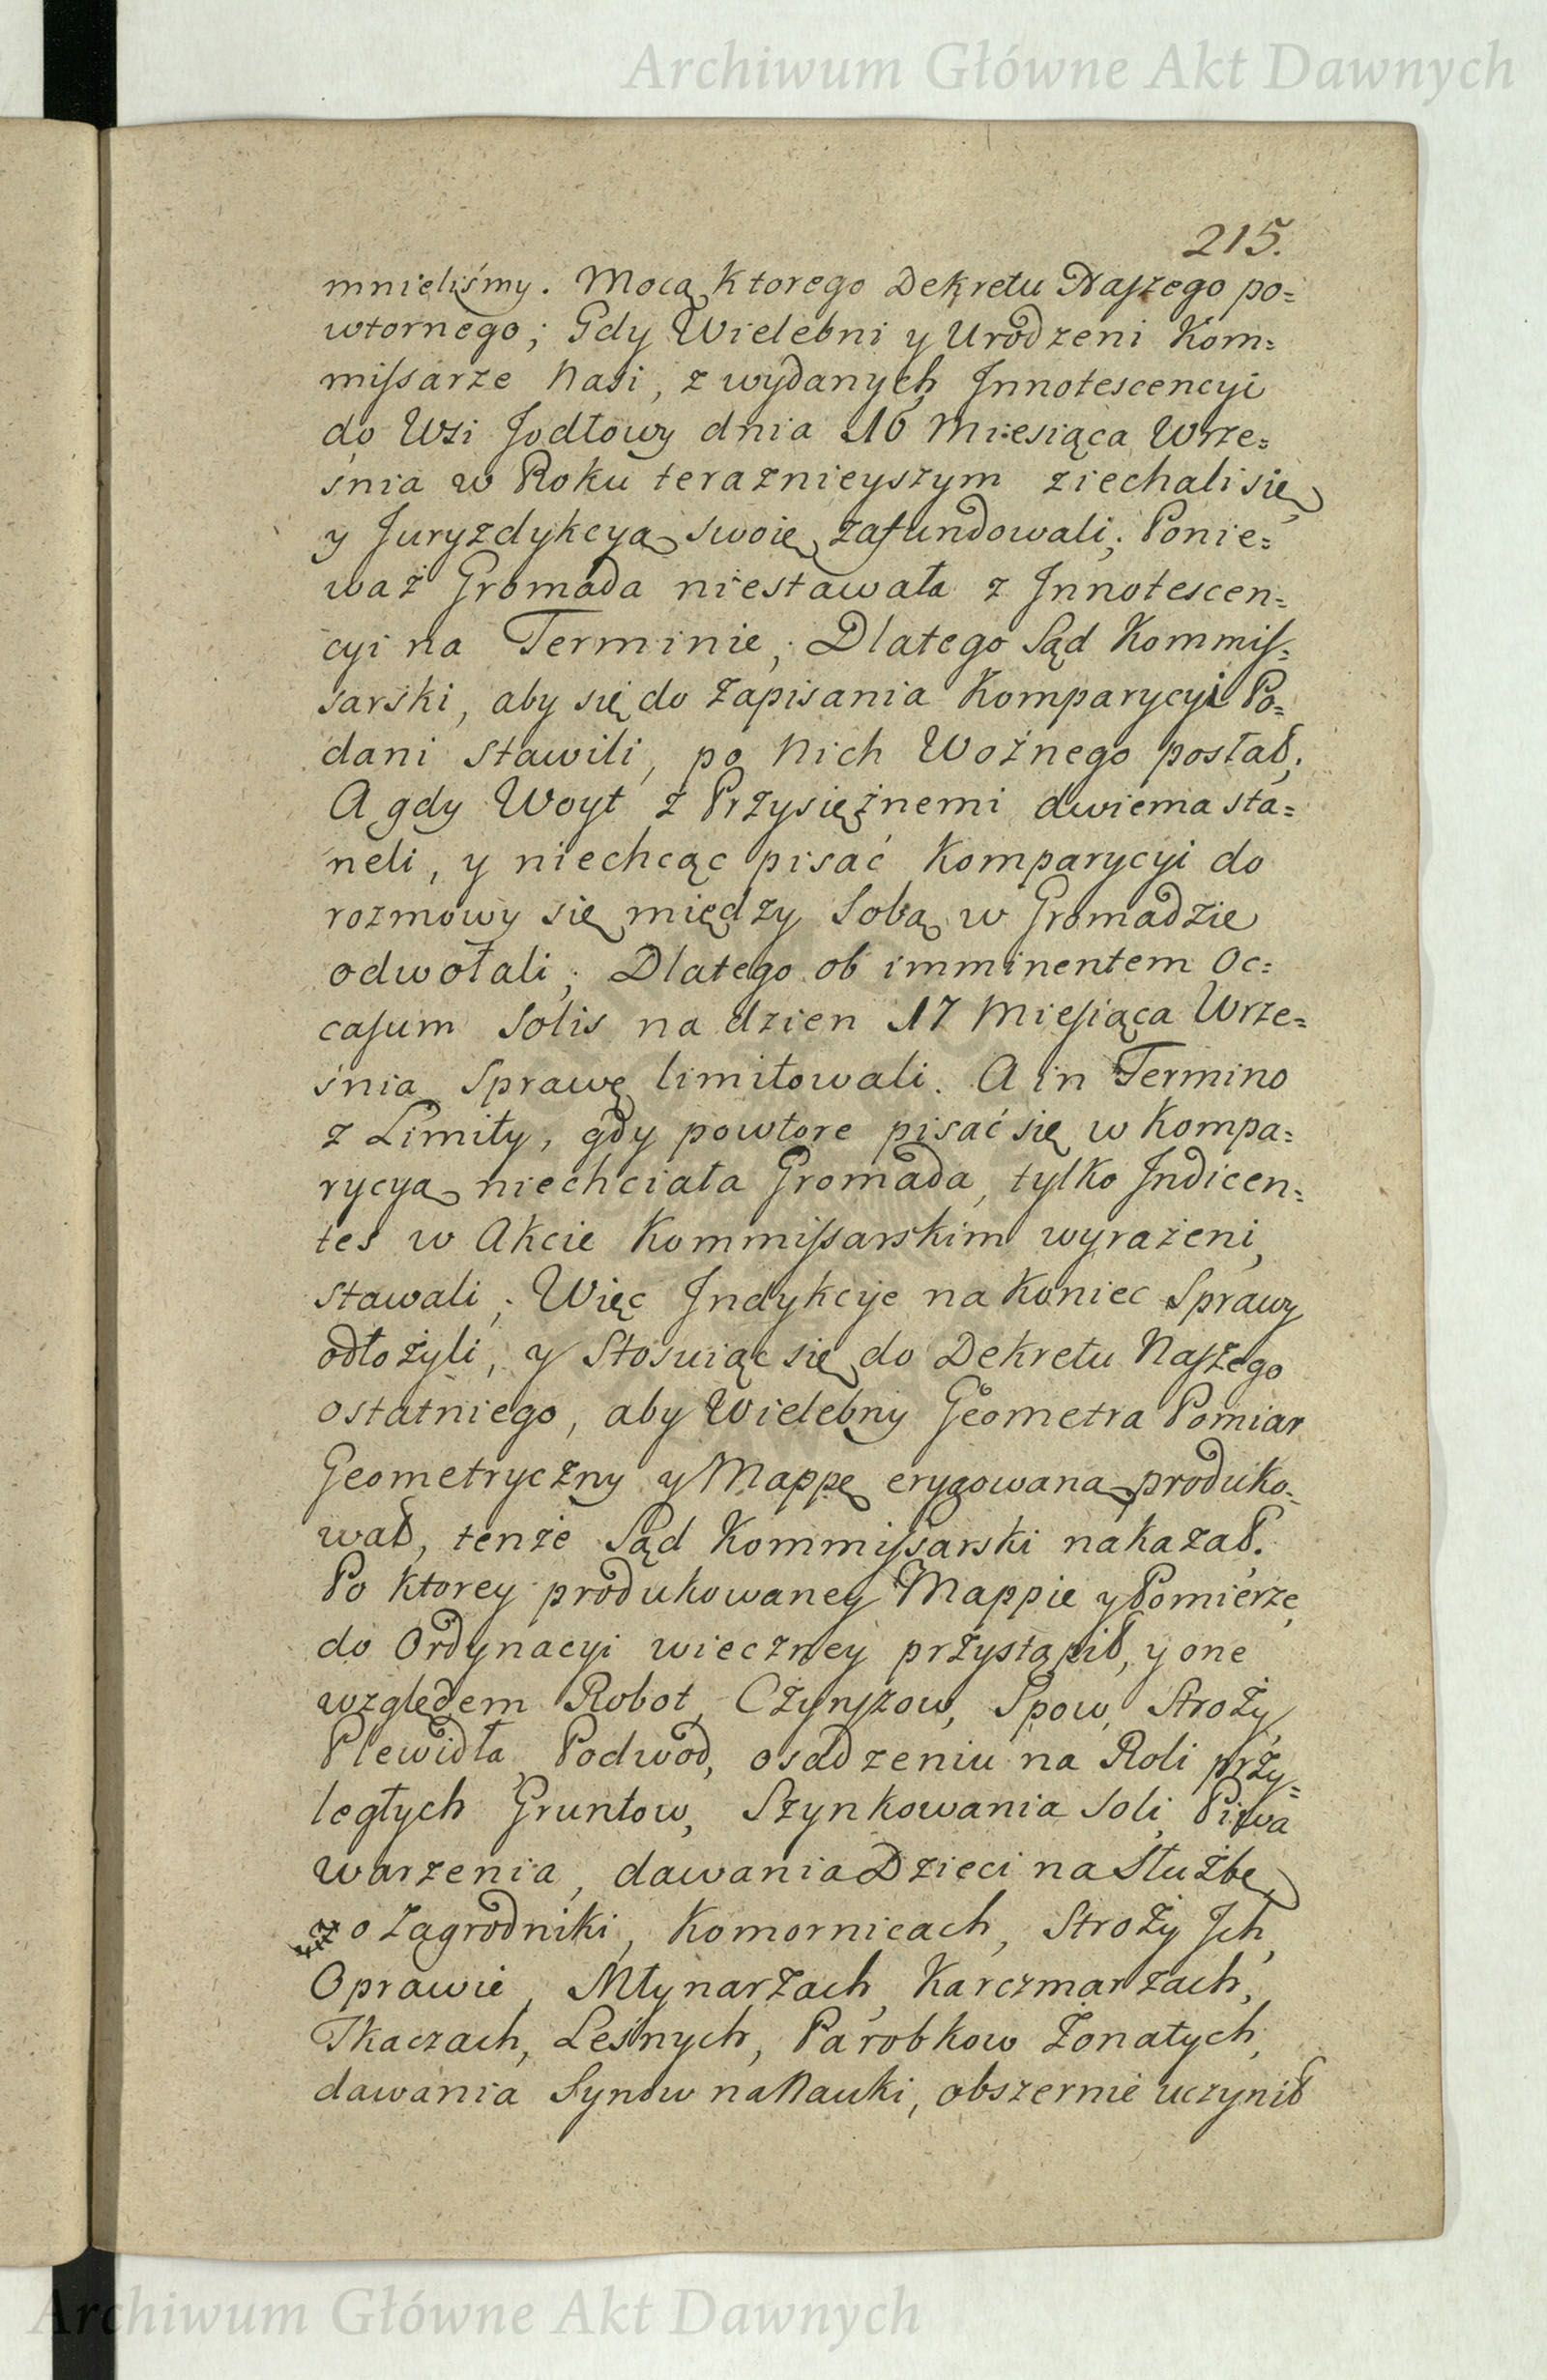 Archiwum Główne Akt Dawnych
215.
mnieliśmy. Mocą Ktorego Dekretu Naſzego po=
wtornego; Gdy Wielebni y Urodzeni Kom=
miſsarze Nasi, z wydanych Innotescencyi
do Wsi Jodłowy dnia 16 Miesiąca Wrze=
śnia w Roku teraznieyszym ziechali się
y Juryzdykcyą swoię zafundowali; Ponie=
waż Gromada niestawała z Innotescen=
cyi na Terminie; Dlatego Sąd Kommiſ=
sarski, aby się do zapisania Komparycyi Po=
dani stawili, po Nich Woźnego posłał;
A gdy Woyt z Przysiężnemi dwiema sta=
neli, y niechcąc pisać Komparycyi do
rozmowy się między Sobą w Gromadzie
odwołali; Dlatego ob imminentem Oc=
caſum Solis na dzien 17 Mieſiąca Wrze=
śnia Sprawę limitowali. A in Termino
z Limity, gdy powtore pisać się w Kompa=
rycyą niechciała Gromada, tylko Indicen=
tes w Akcie Kommiſsarskim wyrażeni,
stawali; Więc Indykcye na Koniec Sprawy
odłożyli, y Stosuiąc się do Dekretu Naſzego
ostatniego, aby Wielebny Geometra Pomiar
Geometryczny y Mappę erygowaną produko=
wał, tenże Sąd Kommiſsarski nakazał.
Po Ktorey produkowaney Mappie y Pomierze,
do Ordynacyi wieczney przystąpił, y one
względem Robot, Czynſzow, Spow, Stroży,
Plewidła, Podwod, osadzeniu na Roli przy=
ległych Gruntow, Szynkowania Soli, Piwa
warzenia, dawania Dzieci na Służbę,
o Zagrodniki, Komornicach, Stroży Ich,
Oprawie, Młynarzach, Karczmarzach,
Tkaczach, Leśnych, Parobkow Żonatych,
dawania Synow na Nauki, obszernie uczynił
Archiwum Główne Akt Dawnych